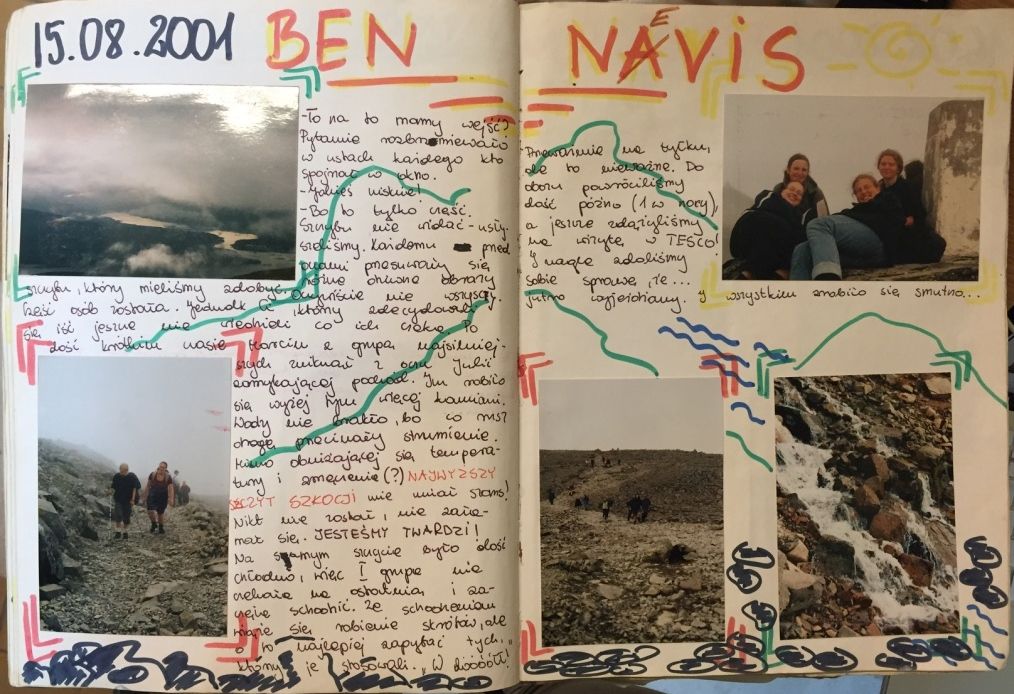 15.08.2001 BEN NEVIS
-To na to mamy wejść?
Pytanie rozbrzmiewało
w ustach każdego kto
spojrzał w okno.
-Jakieś niskie!
-Bo to tylko część.
Szczytu nie widać - usły-
szeliśmy. Każdemu przed
oczami przesuwały się
różne dziwne obrazy
szczytu, który mieliśmy zdobyć. Oczywiście nie wszyscy.
Część osób została. Jednak Ci, którzy zdecydowali
się iść jeszcze nie wiedzieli co ich czeka. Po
dość krótkim czasie starcie z grupą najsilniej-
szych zniknął z oczu Julii
zamykającej pochód. Im robiło
się wyżej tym więcej kamieni.
Wody nie brakło, bo co rusz
drogę przecinały strumienie.
Mimo obniżającej się tempera-
tury i zmęczenie (?) NAJWYŻSZY
SZCZYT SZKOCJI nie miał szans!
Nikt nie został, nie zała-
mał się. JESTEŚMY TWARDZI!
Na samym szczycie było dość
chłodno, więc I grupa nie
czekała na ostatnią i za-
częła schodzić. Ze schodzeniem
wiąże się robienie skrótów, ale
o to najlepiej zapytać tych,
którzy je stosowali. "W dóóół!"
na tyłku,
ale to nieważne. Do
obozu powróciliśmy
dość późno (1 w nocy),
a jeszcze zdążyliśmy
na wizytę w TESCO!
I nagle zdaliśmy
sobie sprawę, że...
jutro wyjeżdżamy. I wszystkim zrobiło się smutno...